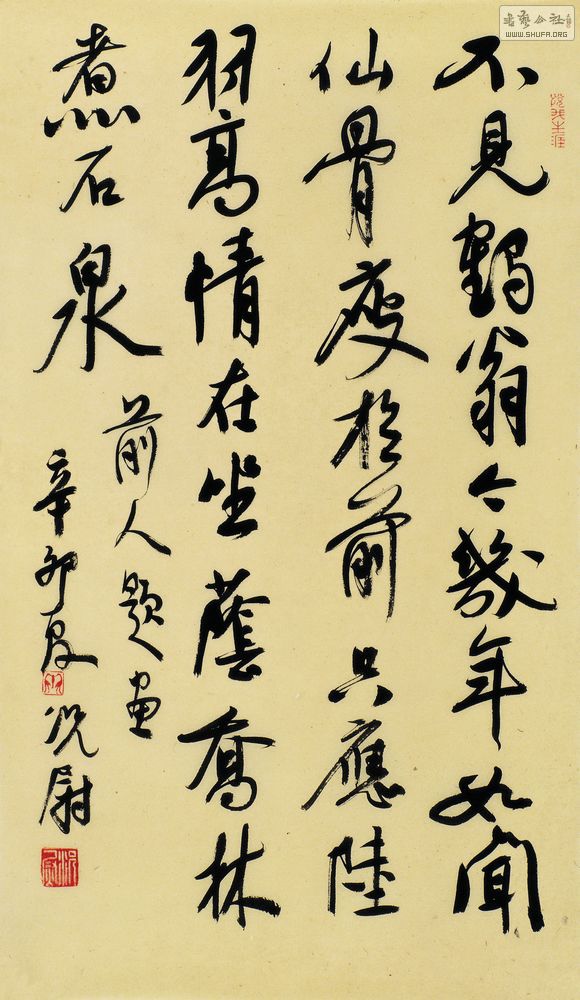 不見鶴翁今幾年如聞
仙骨瘦於前只應陸
羽高情在坐蔭喬林
煮石泉
前人題畫
辛卯夏況尉
書藝公社
WWW.SHUFA.ORG